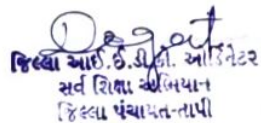 જિલ્લા આઈ.ઈ.ડી. કો. ઓર્ડિનેટર
સર્વ શિક્ષા અભિયાન
જિલ્લા પંચાયત-તાપી